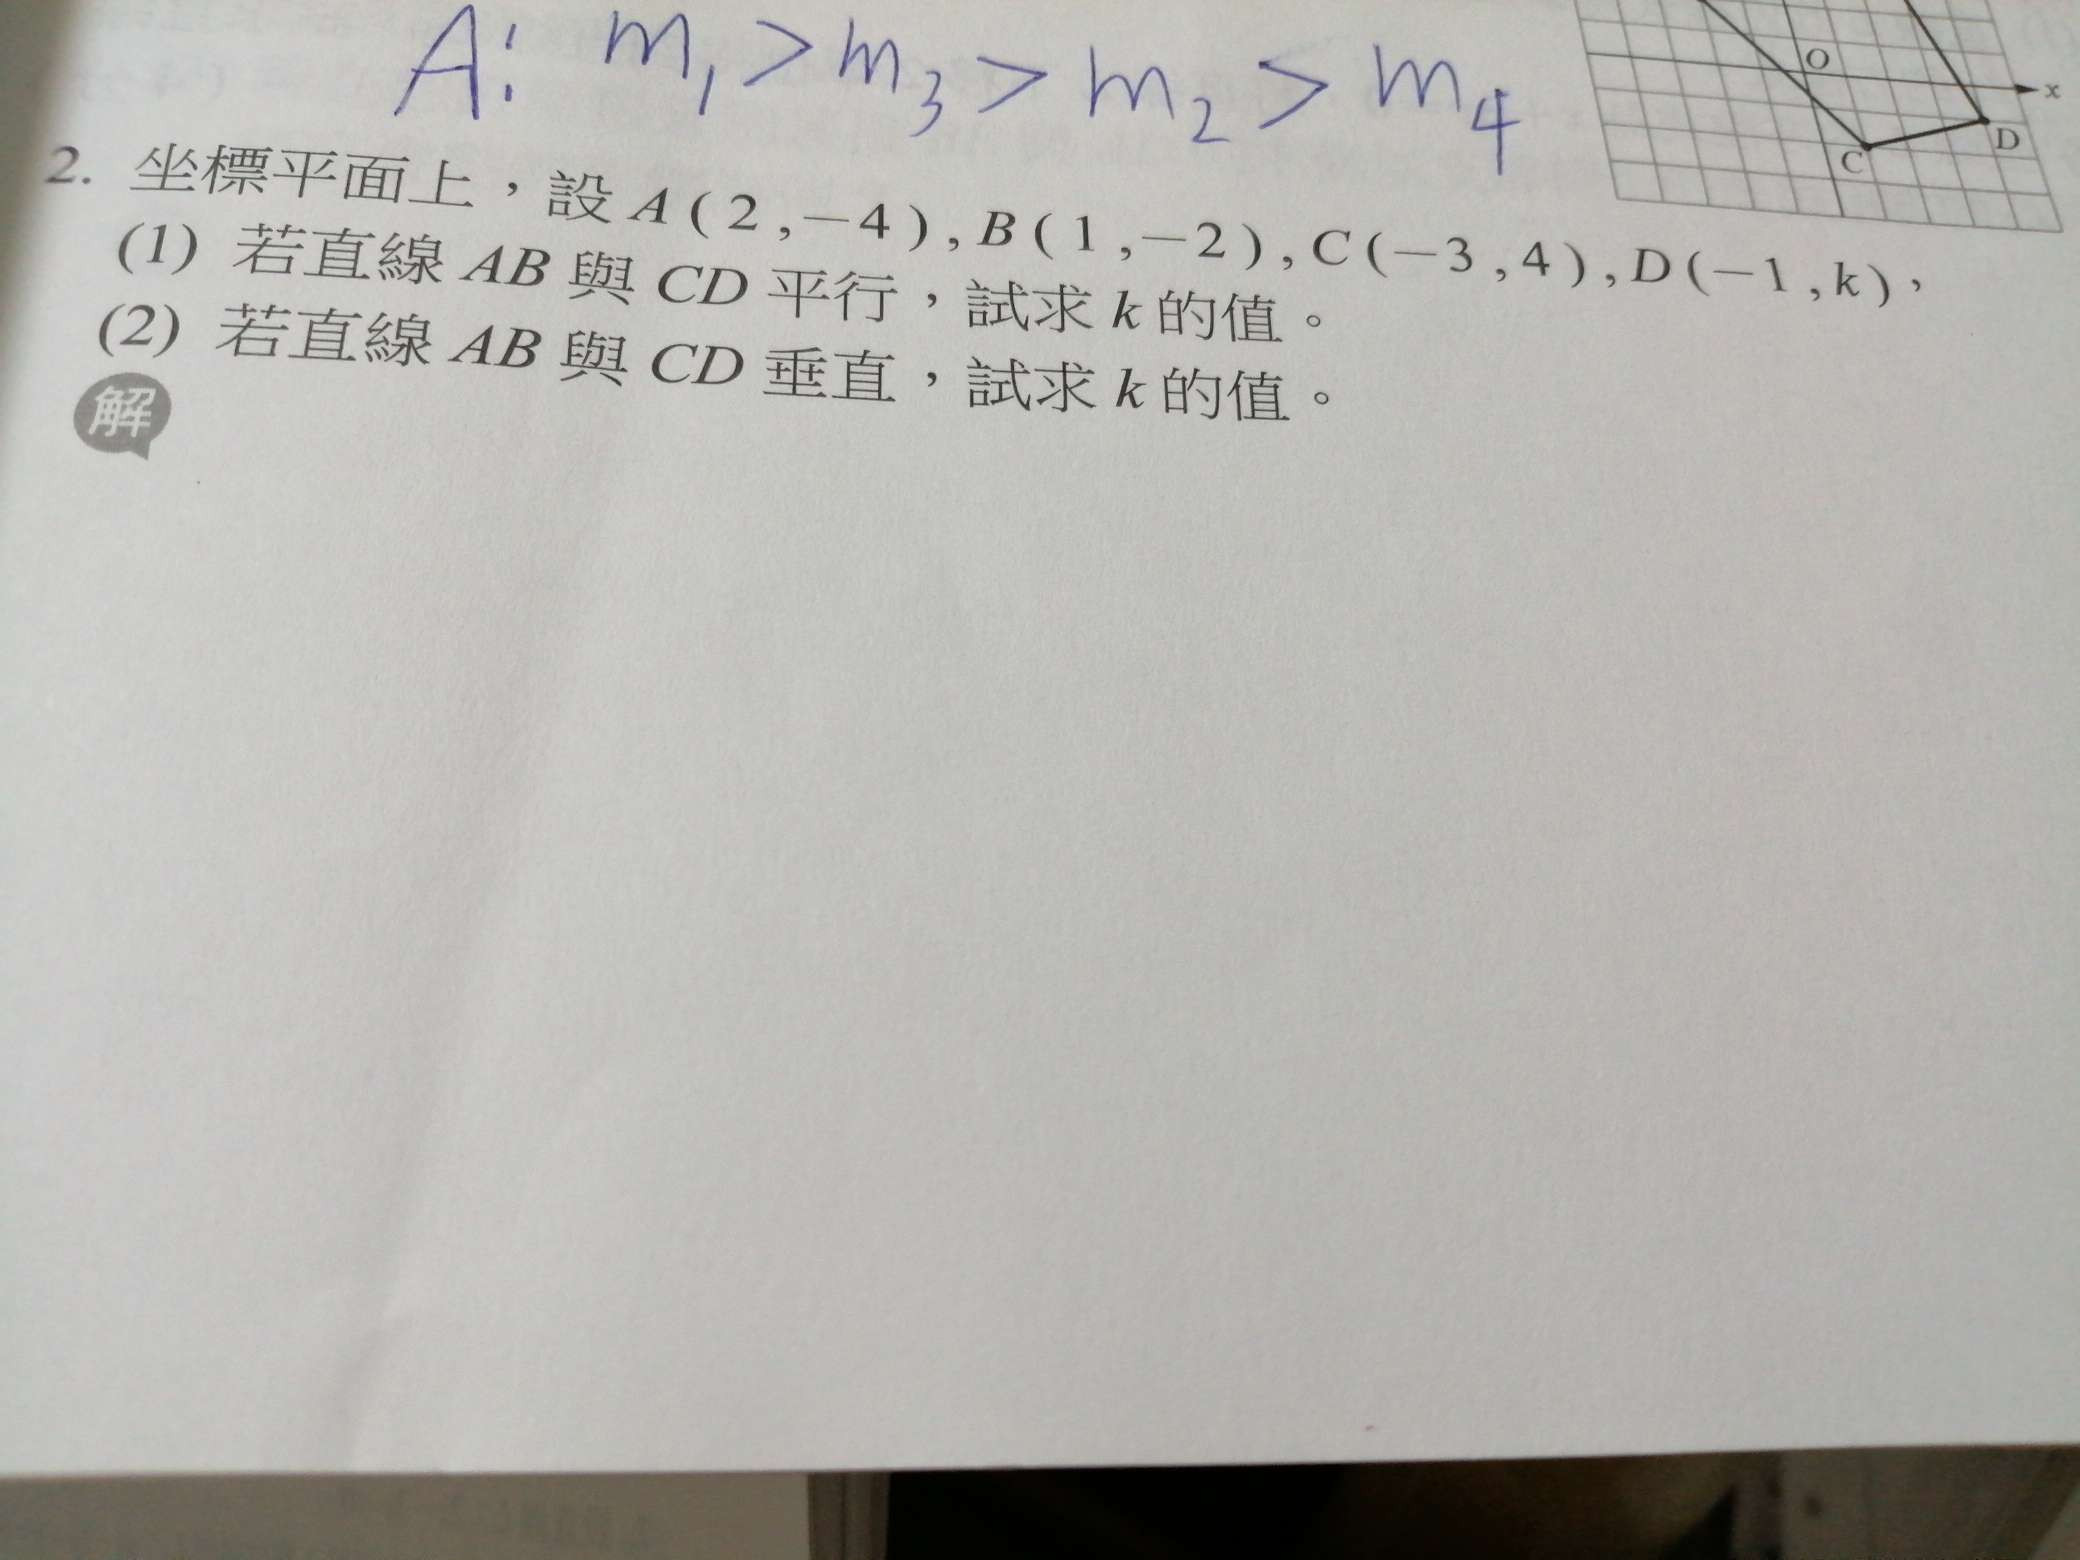 A: m₁ > m₃ > m₂ > m₄
O
x
D
C
2. 坐標平面上，設 A(2,−4), B(1,−2), C(−3,4), D(−1,k)，
(1) 若直線 AB 與 CD 平行，試求 k 的值。
(2) 若直線 AB 與 CD 垂直，試求 k 的值。
解